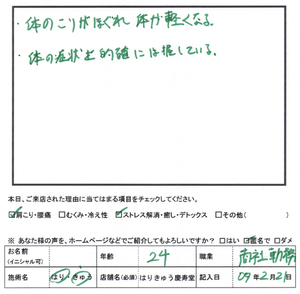 ・体のこりがほぐれ 体が軽くなる。
・体の症状を的確には握している。
本日、ご来店された理由に当てはまる項目をチェックしてください。
☑肩こり・腰痛 □むくみ・冷え性 ☑ストレス解消・癒し・デトックス □その他( )
※ あなた様の声を、ホームページなどでご紹介してもよろしいですか? □はい ☑匿名で □ダメ
お名前 (イニシャル可) 年齢 24 職業 商社勤務
施術名 はり・きゅう 店舗名(必須) はりきゅう慶寿堂 記入日 09年2月21日